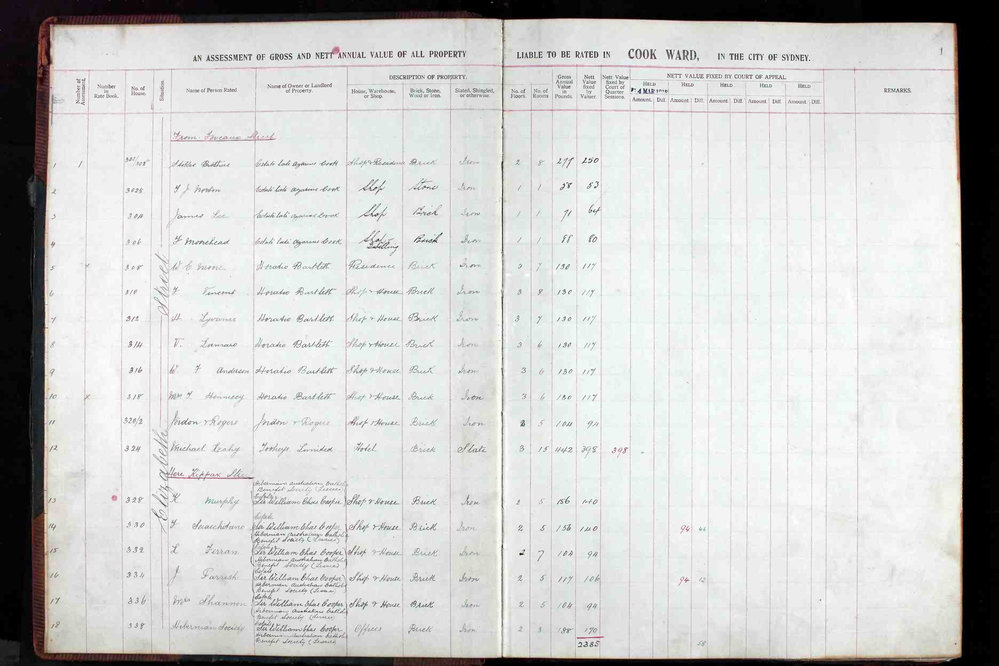 AN ASSESSMENT OF GROSS AND NETT ANNUAL VALUE OF ALL PROPERTY LIABLE TO BE RATED IN COOK WARD, IN THE CITY OF SYDNEY.
1
DESCRIPTION OF PROPERTY.
NETT VALUE FIXED BY COURT OF APPEAL
Number of Assessment. Number in Rate Book. No. of House. Situation. Name of Person Rated. Name of Owner or Landlord of Property. House, Warehouse, or Shop. Brick, Stone, Wood or Iron. Slated, Shingled, or otherwise. No. of Floors. No. of Rooms Gross Annual Value in Pounds. Nett Value fixed by Valuer. Nett Value fixed by Court of Quarter Sessions. REMARKS.
HELD HELD HELD HELD HELD
4 MAR
Amount. Diff. Amount. Diff. Amount. Diff. Amount. Diff. Amount. Diff.
Elizabeth Street
From Foveaux Street
1 1 Brothers Estate late Azarius Cook Shop & Residence Brick Iron 2 8 277 250
2 302B F J Norton Estate late Azarius Cook Shop Stone Iron 1 1 58 53
3 304 James Lee Estate late Azarius Cook Shop Brick Iron 1 1 71 64
4 306 F Moorhead Estate late Azarius Cook Shop & Dwelling Brick Iron 1 1 88 80
5 308 W C Moore Horatio Bartlett Residence Brick Iron 3 7 130 117
6 310 F Vincent Horatio Bartlett Shop & House Brick Iron 3 8 130 117
7 312 H Horatio Bartlett Shop & House Brick Iron 3 7 130 117
8 314 V. Horatio Bartlett Shop & House Brick Iron 3 6 130 117
9 316 W F Anderson Horatio Bartlett Shop & House Brick Iron 3 6 130 117
10 x 318 Mrs F Hennessy Horatio Bartlett Shop & House Brick Iron 3 6 130 117
11 320/2 Jordon & Rogers Jordon & Rogers Shop & House Brick Iron 2 5 104 94
12 324 Michael Leahy Tooheys Limited Hotel Brick Slate 3 15 442 398 398
Here Kippax Street
Hibernian Australian Catholic
Benefit Society (Lessees)
Estate
13 328 K Murphy Sir William Chas Cooper Shop & House Brick Iron 2 5 156 140
Estate
14 330 F Sir William Chas Cooper Shop & House Brick Iron 2 5 156 140 94 46
Hibernian Australian Catholic
Benefit Society (Lessees)
Estate
15 332 L Ferran Sir William Chas Cooper Shop & House Brick Iron 2 7 104 94
Hibernian Australian Catholic
Benefit Society (Lessees)
Estate
16 334 J Parrish Sir William Chas Cooper Shop & House Brick Iron 2 5 117 106 94 12
Hibernian Australian Catholic
Benefit Society (Lessees)
Estate
17 336 Mrs Shannon Sir William Chas Cooper Shop & House Brick Iron 2 5 104 94
Hibernian Australian Catholic
Benefit Society (Lessees)
Estate
18 338 Hibernian Society Sir William Chas Cooper Offices Brick Iron 2 3 188 170
Hibernian Australian Catholic
Benefit Society (Lessees)
2385 58